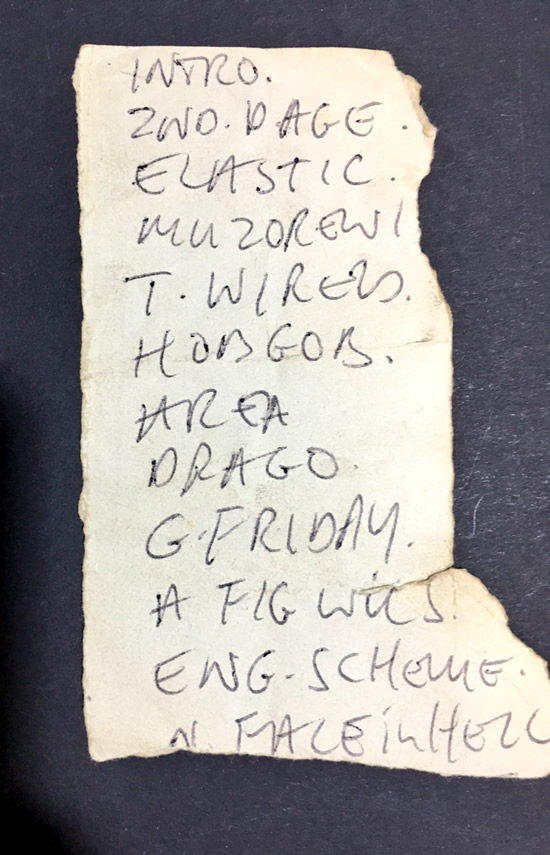 INTRO.
2ND. D AGE.
ELASTIC.
MUZOREWI
T. WIRED.
HOBGOB.
AREA
DRAGO.
G. FRIDAY.
A FIG WLKS.
ENG. SCHEME.
N FACE in HELL